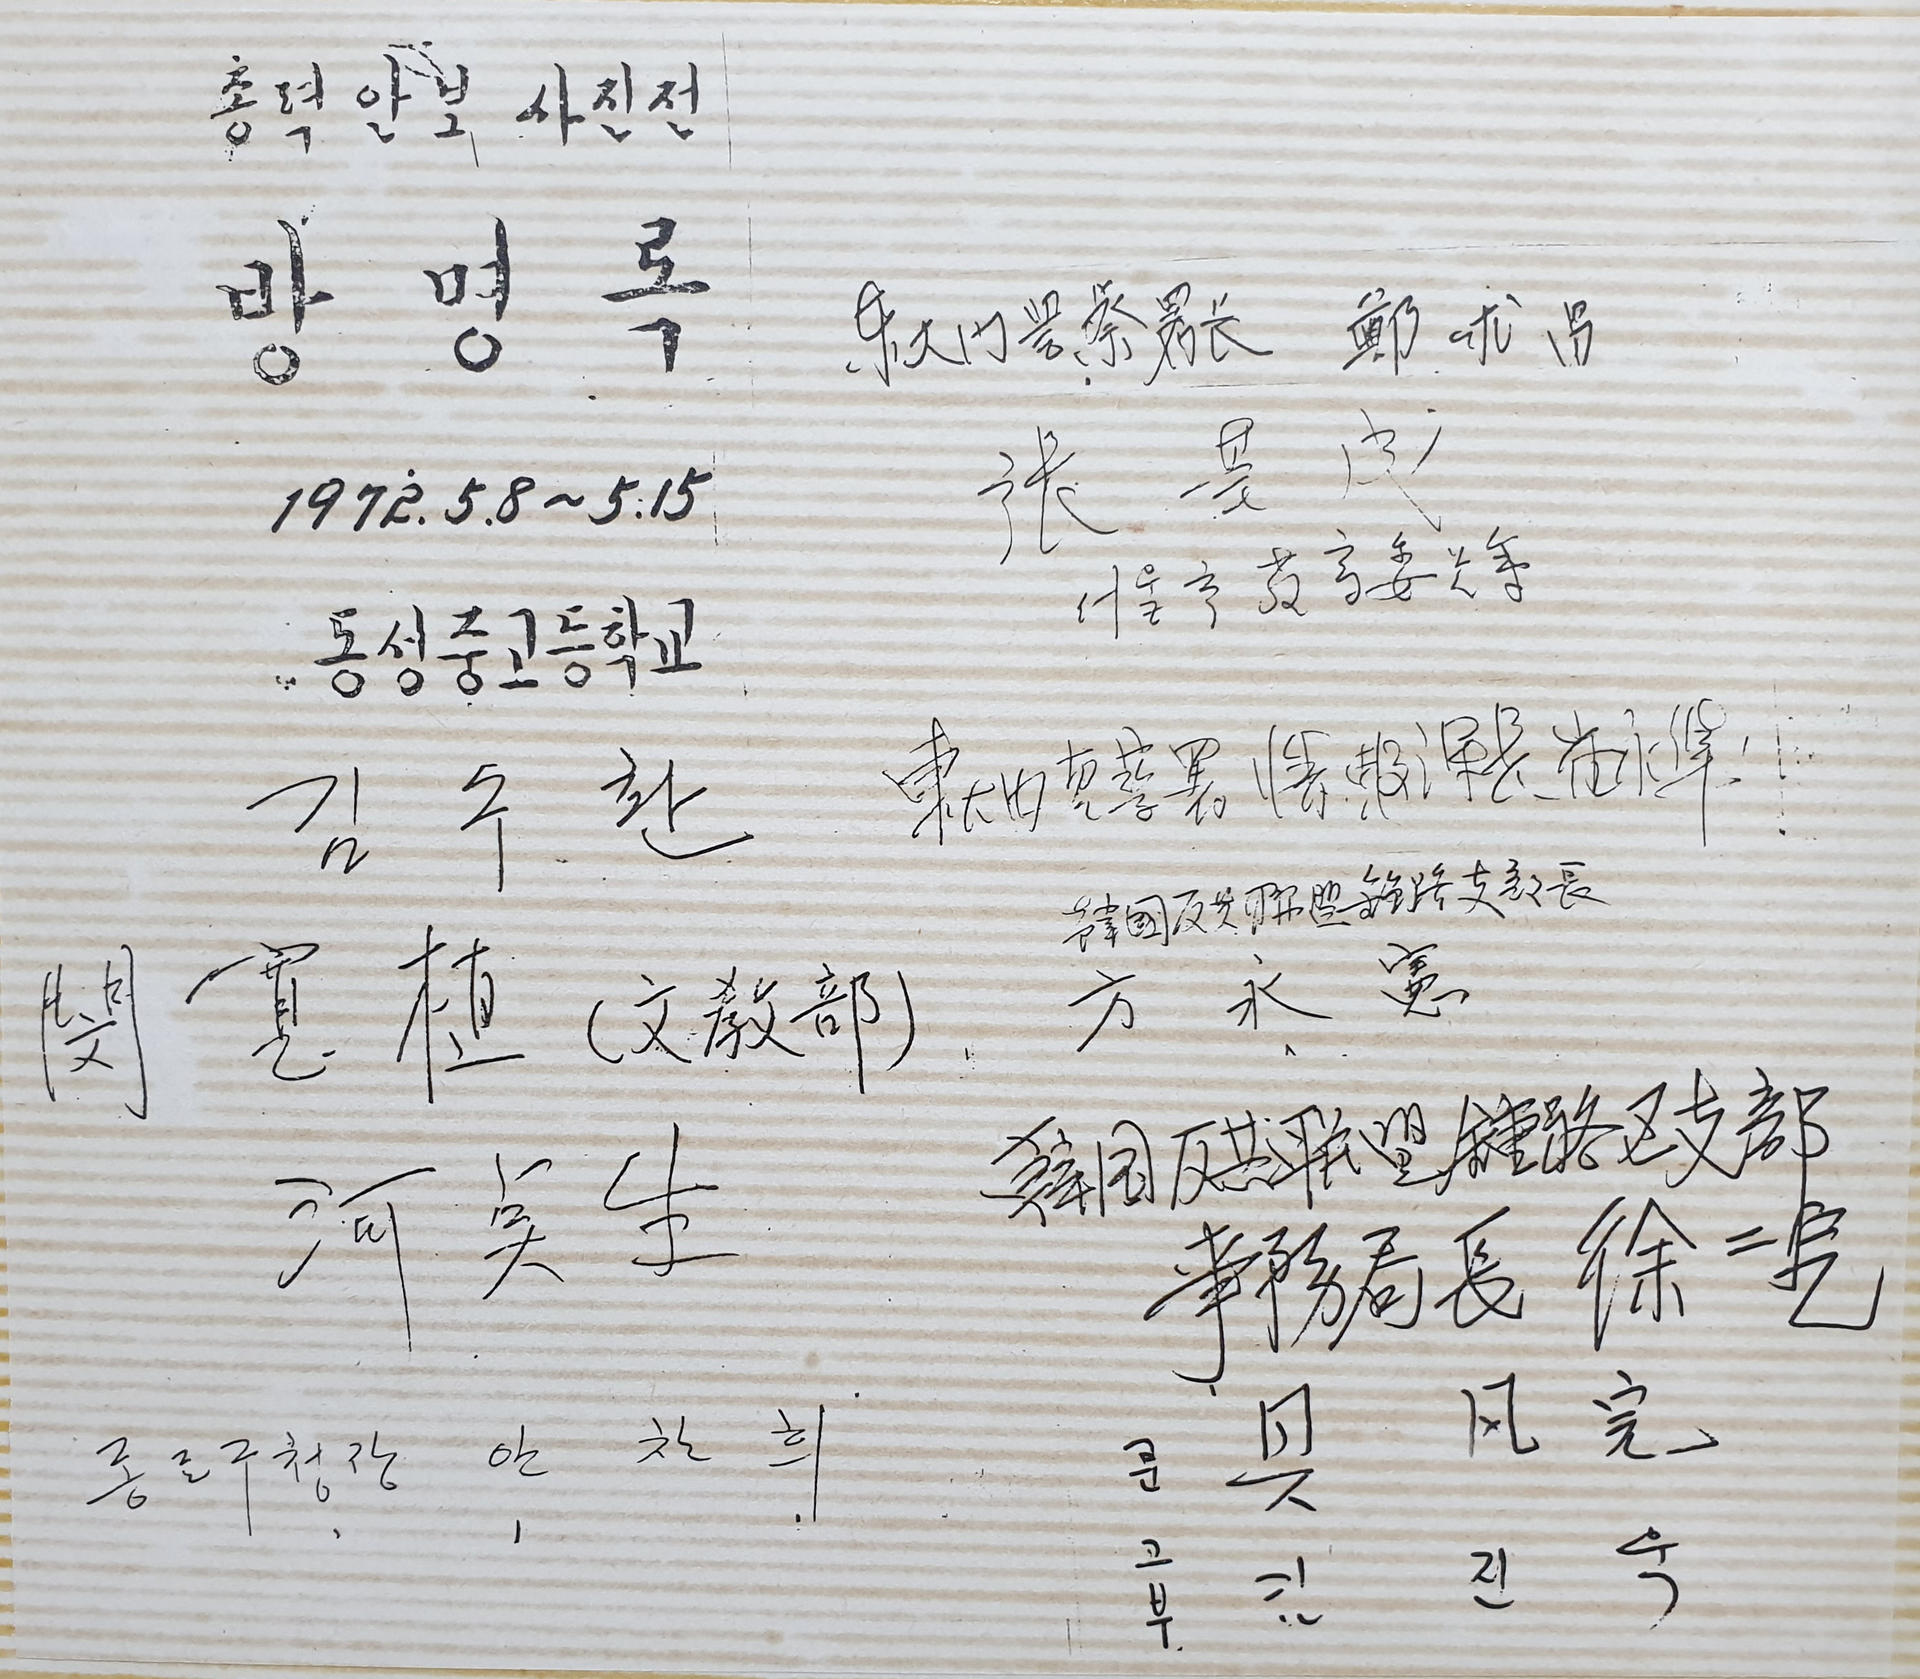 총력 안보 사진전
방명록
1972. 5. 8 ~ 5. 15
동성중고등학교
김수환
閔寬植 (文教部)
河 生
종로구청장 안찬희
東大門警察署長 鄭 昌
張
서울市 教育委
東大門警察署 情報課長 永
韓國反共聯盟鍾路支部長
方永憲
韓国反共聯盟鍾路区支部
事務局長 徐
문 吳凤完
교
부 진욱